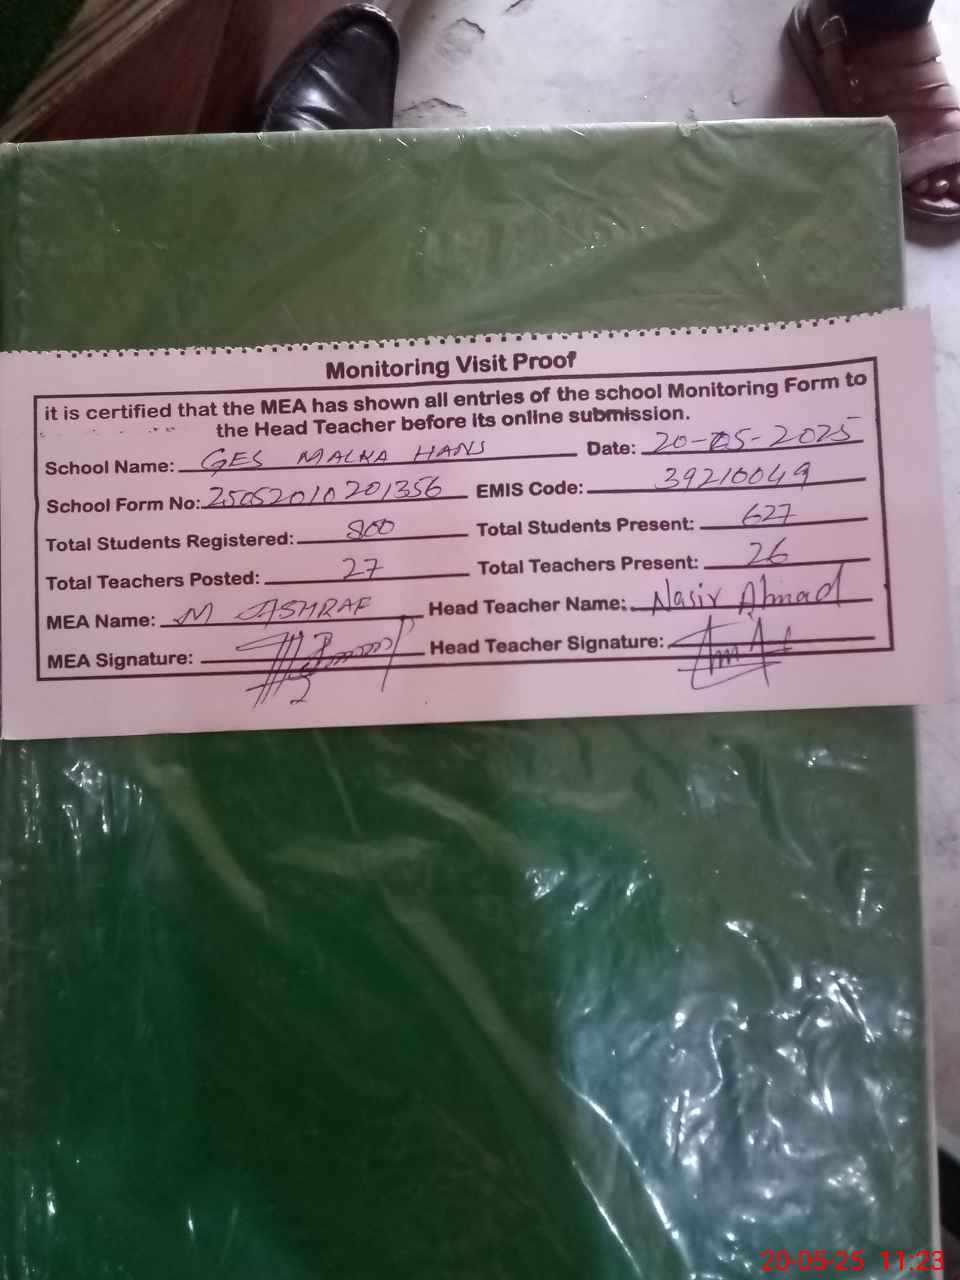 Monitoring Visit Proof
it is certified that the MEA has shown all entries of the school Monitoring Form to
the Head Teacher before its online submission.
School Name: GES MALKA HANS Date: 20-05-2025
School Form No: 25052010201356 EMIS Code: 39210049
Total Students Registered: 800 Total Students Present: 627
Total Teachers Posted: 27 Total Teachers Present: 26
MEA Name: M ASHRAF Head Teacher Name: Nasir Ahmad
MEA Signature: Head Teacher Signature:
20-05-25 11:23